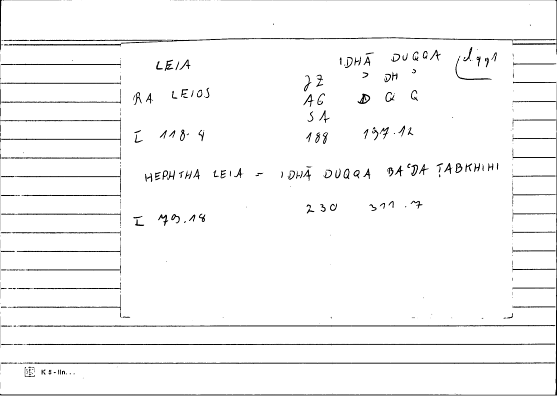 LEIA IDHĀ DUQQA
JZ ʾ DH ʾ
RA LEIOS AG D Q Q
SA
I 118.4 188 137.12
HEPHTHA LEIA = IDHĀ DUQQA BAʿDA ṬABKHIHI
I 79.18 230 311.7
K 5 - lin...